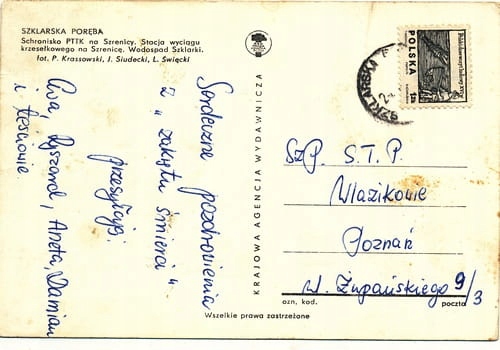 SZKLARSKA PORĘBA
Schronisko PTTK na Szrenicy. Stacja wyciągu
krzesełkowego na Szrenicę. Wodospad Szklarki.
fot. P. Krassowski, J. Siudecki, L. Święcki
Serdeczne pozdrowienia
z „zakrętu śmierci"
przesyłają:
Ewa, Ryszard, Aneta, Damian
i teściowie.
KRAJOWA AGENCJA WYDAWNICZA
POLSKA
SZKLARSKA
SzP. S.T.P.
Wlazikowie
Poznań
ul. Żupańskiego 9/3
ozn. kod. poczta
Wszelkie prawa zastrzeżone